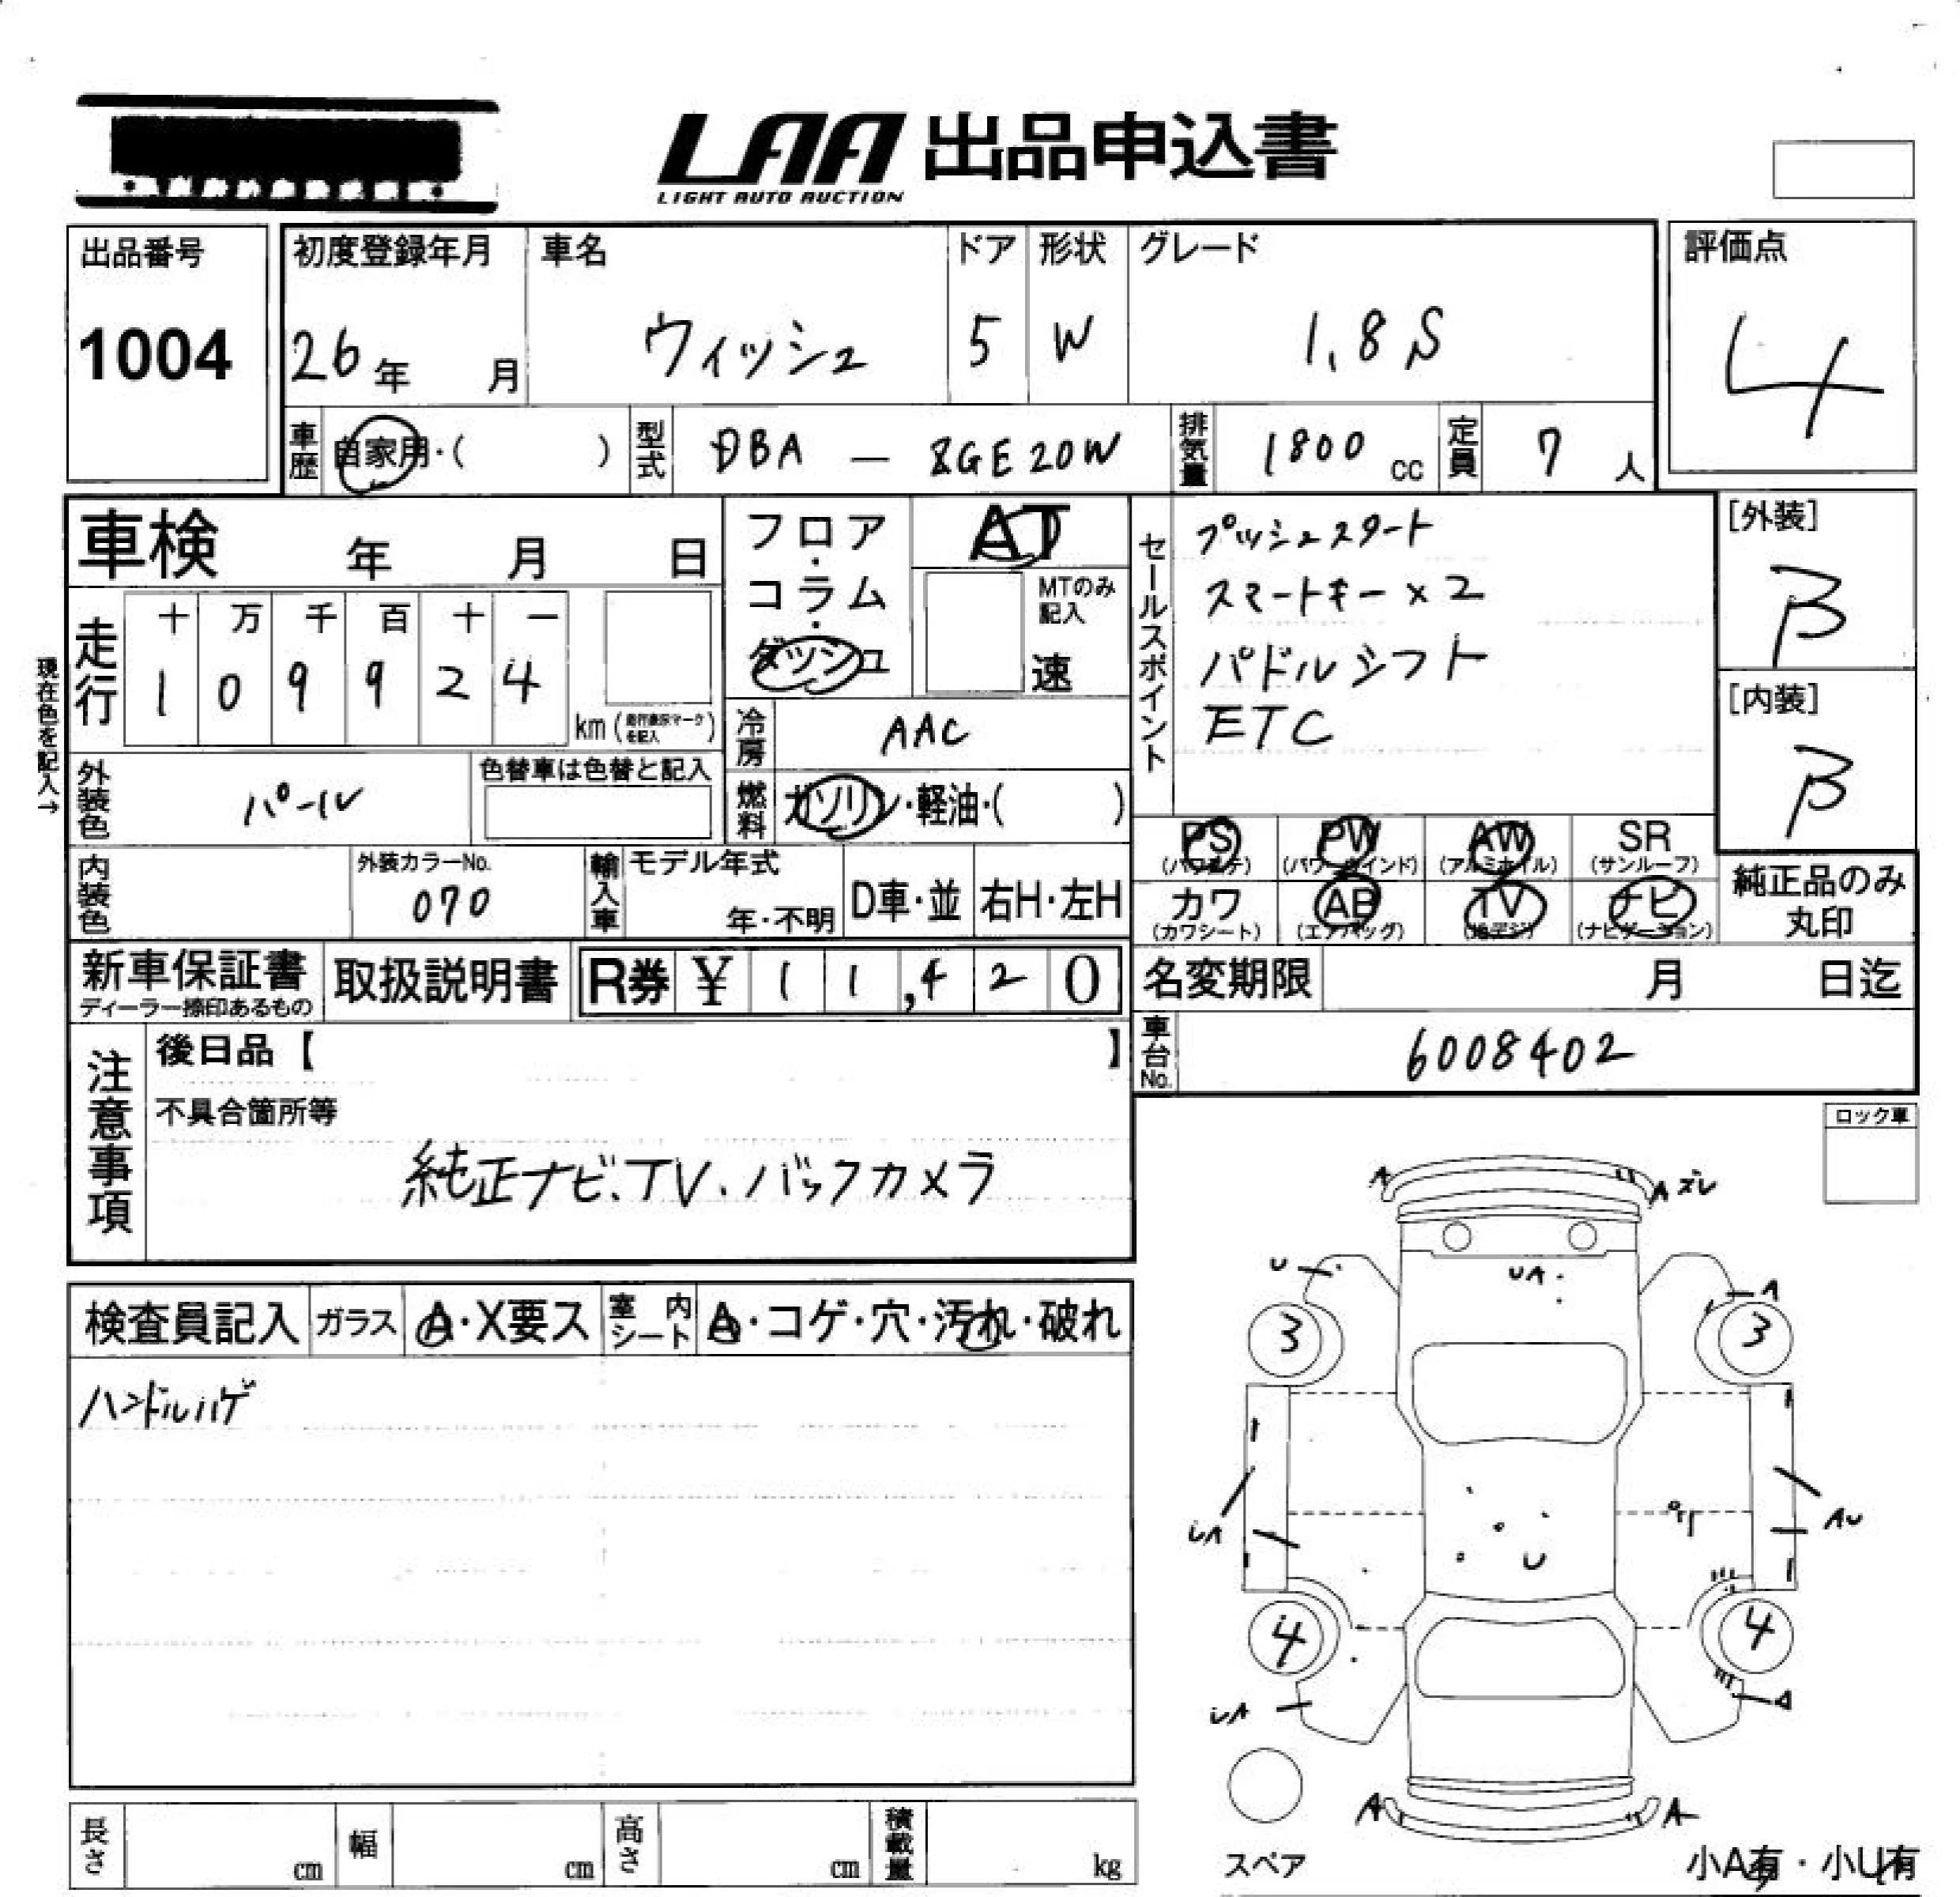 LAA 出品申込書
LIGHT AUTO AUCTION
出品番号
1004
初度登録年月
26年 月
車名
ウィッシュ
ドア
5
形状
W
グレード
1.8S
評価点
4
車歴
自家用・( )
型式
DBA - ZGE20W
排気量
1800 cc
定員
7 人
車検 年 月 日
現在色を記入→
走行
十 万 千 百 十 一
1 0 9 9 2 4
km (走行表示マークを記入)
フロア・コラム・ダッシュ
AT
MTのみ記入
速
冷房
AAC
燃料
ガソリン・軽油・( )
セールスポイント
プッシュスタート
スマートキー×2
パドルシフト
ETC
[外装]
B
[内装]
B
外装色
パール
色替車は色替と記入
内装色
外装カラーNo.
070
輸入車
モデル年式
年・不明
D車・並
右H・左H
PS (パワステ)
PW (パワーウインド)
AW (アルミホイル)
SR (サンルーフ)
カワ (カワシート)
AB (エアバッグ)
TV (地デジ)
ナビ (ナビゲーション)
純正品のみ丸印
新車保証書
ディーラー捺印あるもの
取扱説明書
R券 ¥ 11,420
名変期限 月 日迄
車台No.
6008402
注意事項
後日品【 】
不具合箇所等
純正ナビ、TV、バックカメラ
ロック車
検査員記入
ガラス
A・X要ス
室内シート
A・コゲ・穴・汚れ・破れ
ハンドルハゲ
A
A ズレ
U
UA
A
3
3
UA
AU
U
4
4
UA
A
A
A
スペア
小A有・小U有
長さ cm
幅 cm
高さ cm
積載量 kg